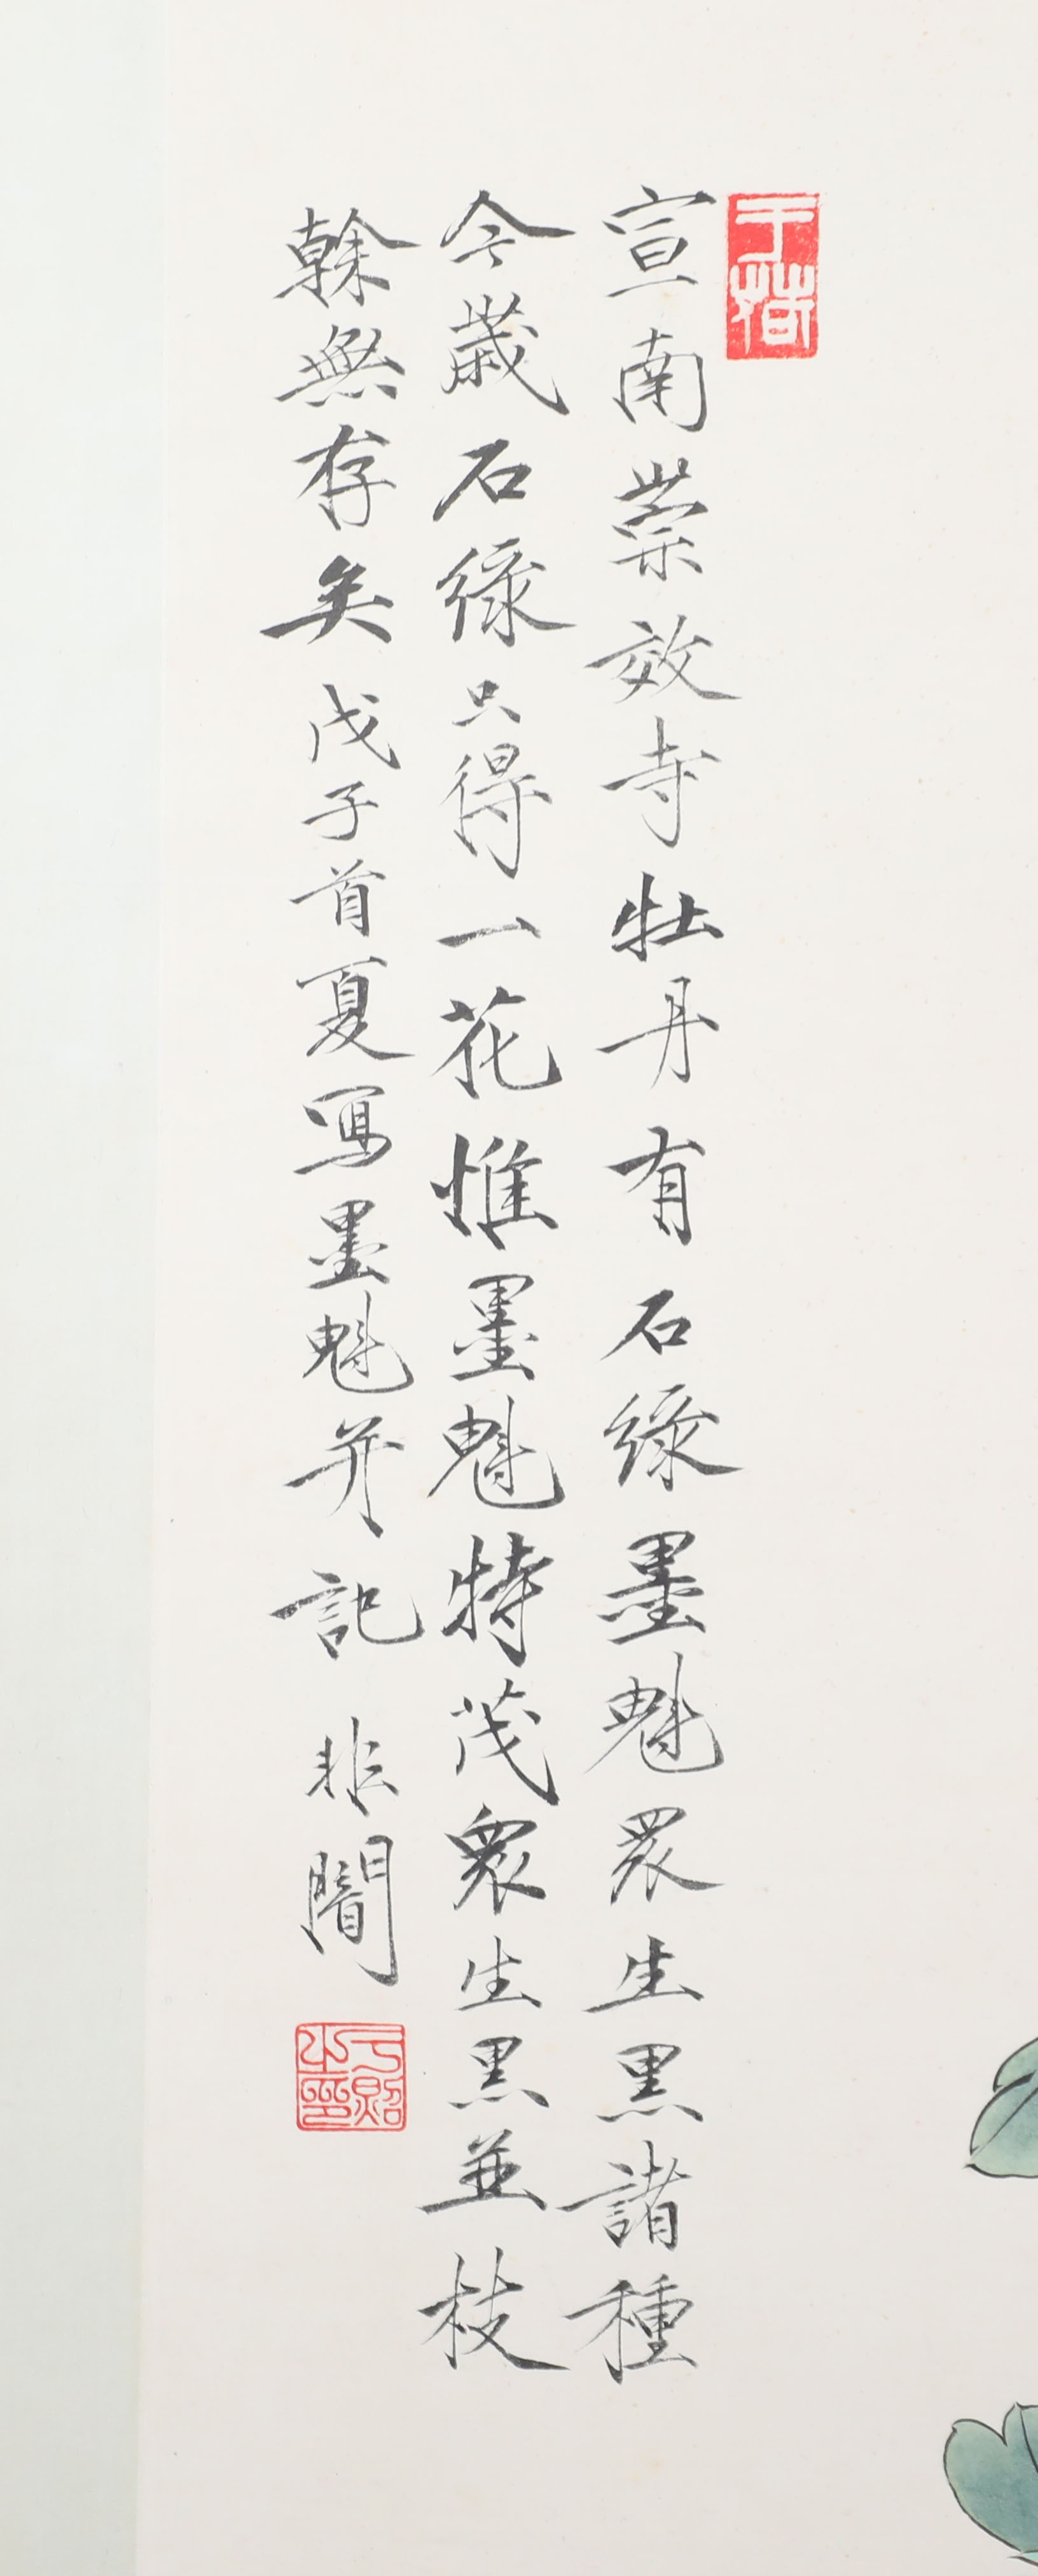 宣南崇效寺牡丹有石綠墨魁眾生黑諸種
今歲石綠只得一花惟墨魁特茂眾生黑並枝
榦無存矣戊子首夏寫墨魁并記非闇
于照之印